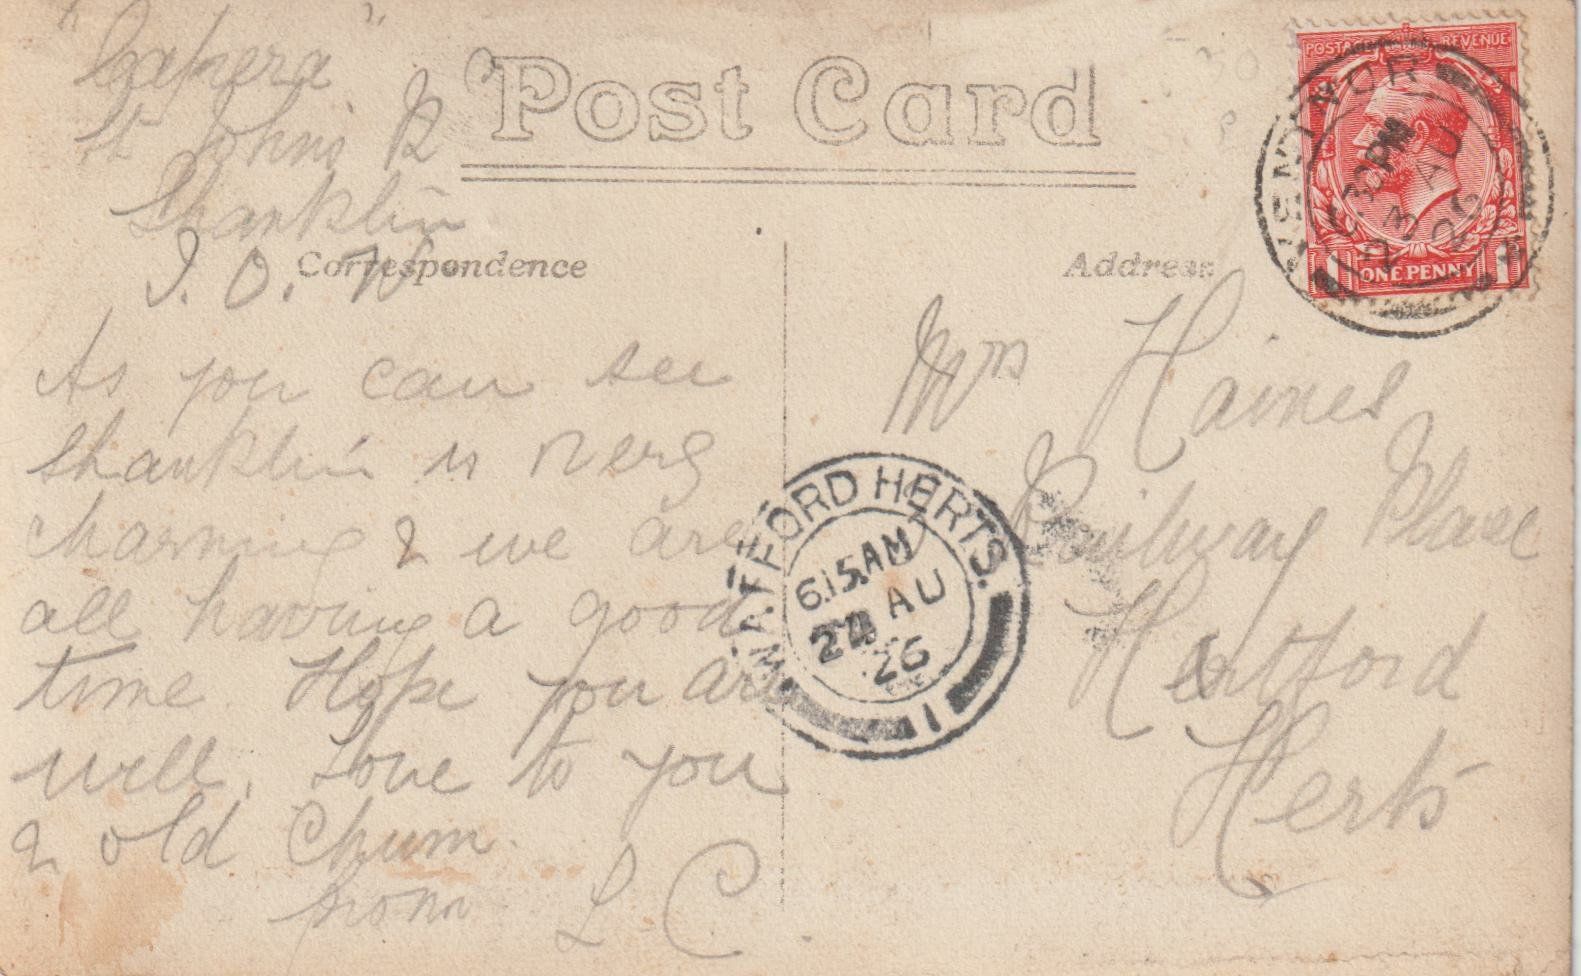 "Capera"
St Johns R
Shanklin
I. O. W
Post Card
Correspondence
As you can see
Shanklin is very
charming & we are
all having a good
time. Hope you are
well, Love to you
& old Chum.
from L C.
Address
Mrs Haines
Railway Place
Hertford
Herts
POSTAGE REVENUE
ONE PENNY
1 1
VENTNOR
30 PM
23 AU
26
WATFORD HERTS.
6.15 AM
24 AU
26
11